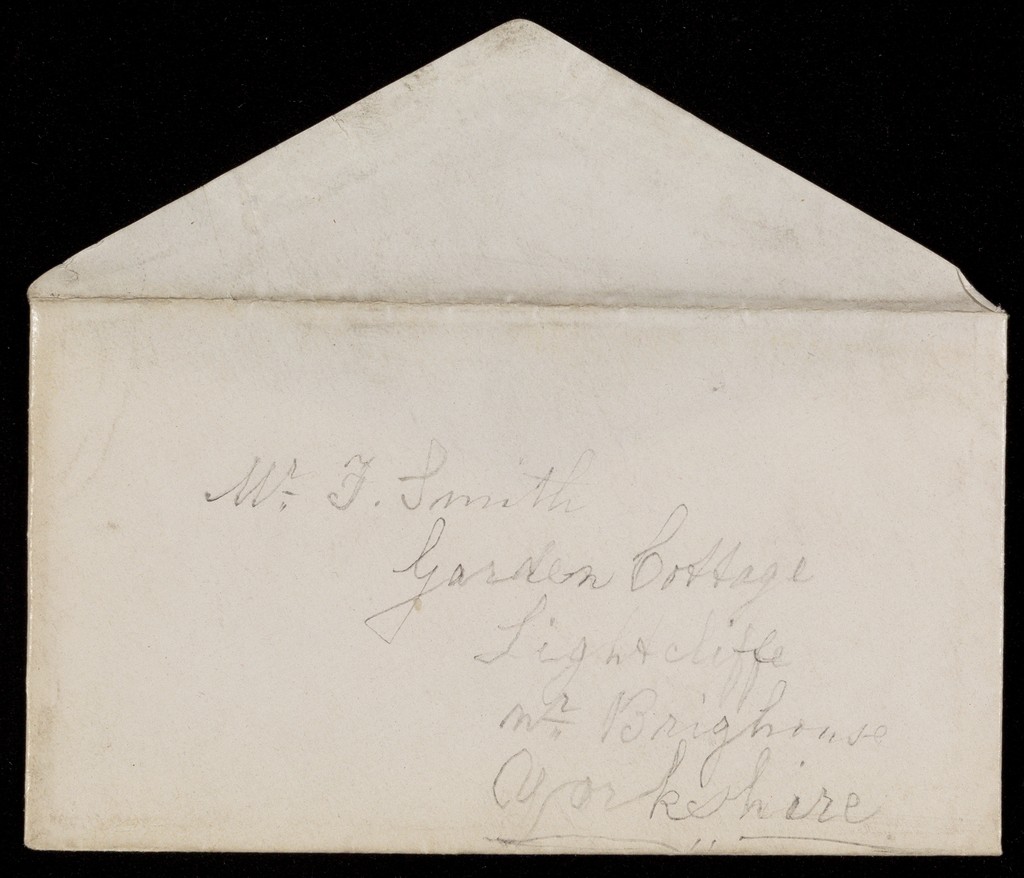 Mr. F. Smith
Garden Cottage
Lightcliffe
nr Brighouse
Yorkshire